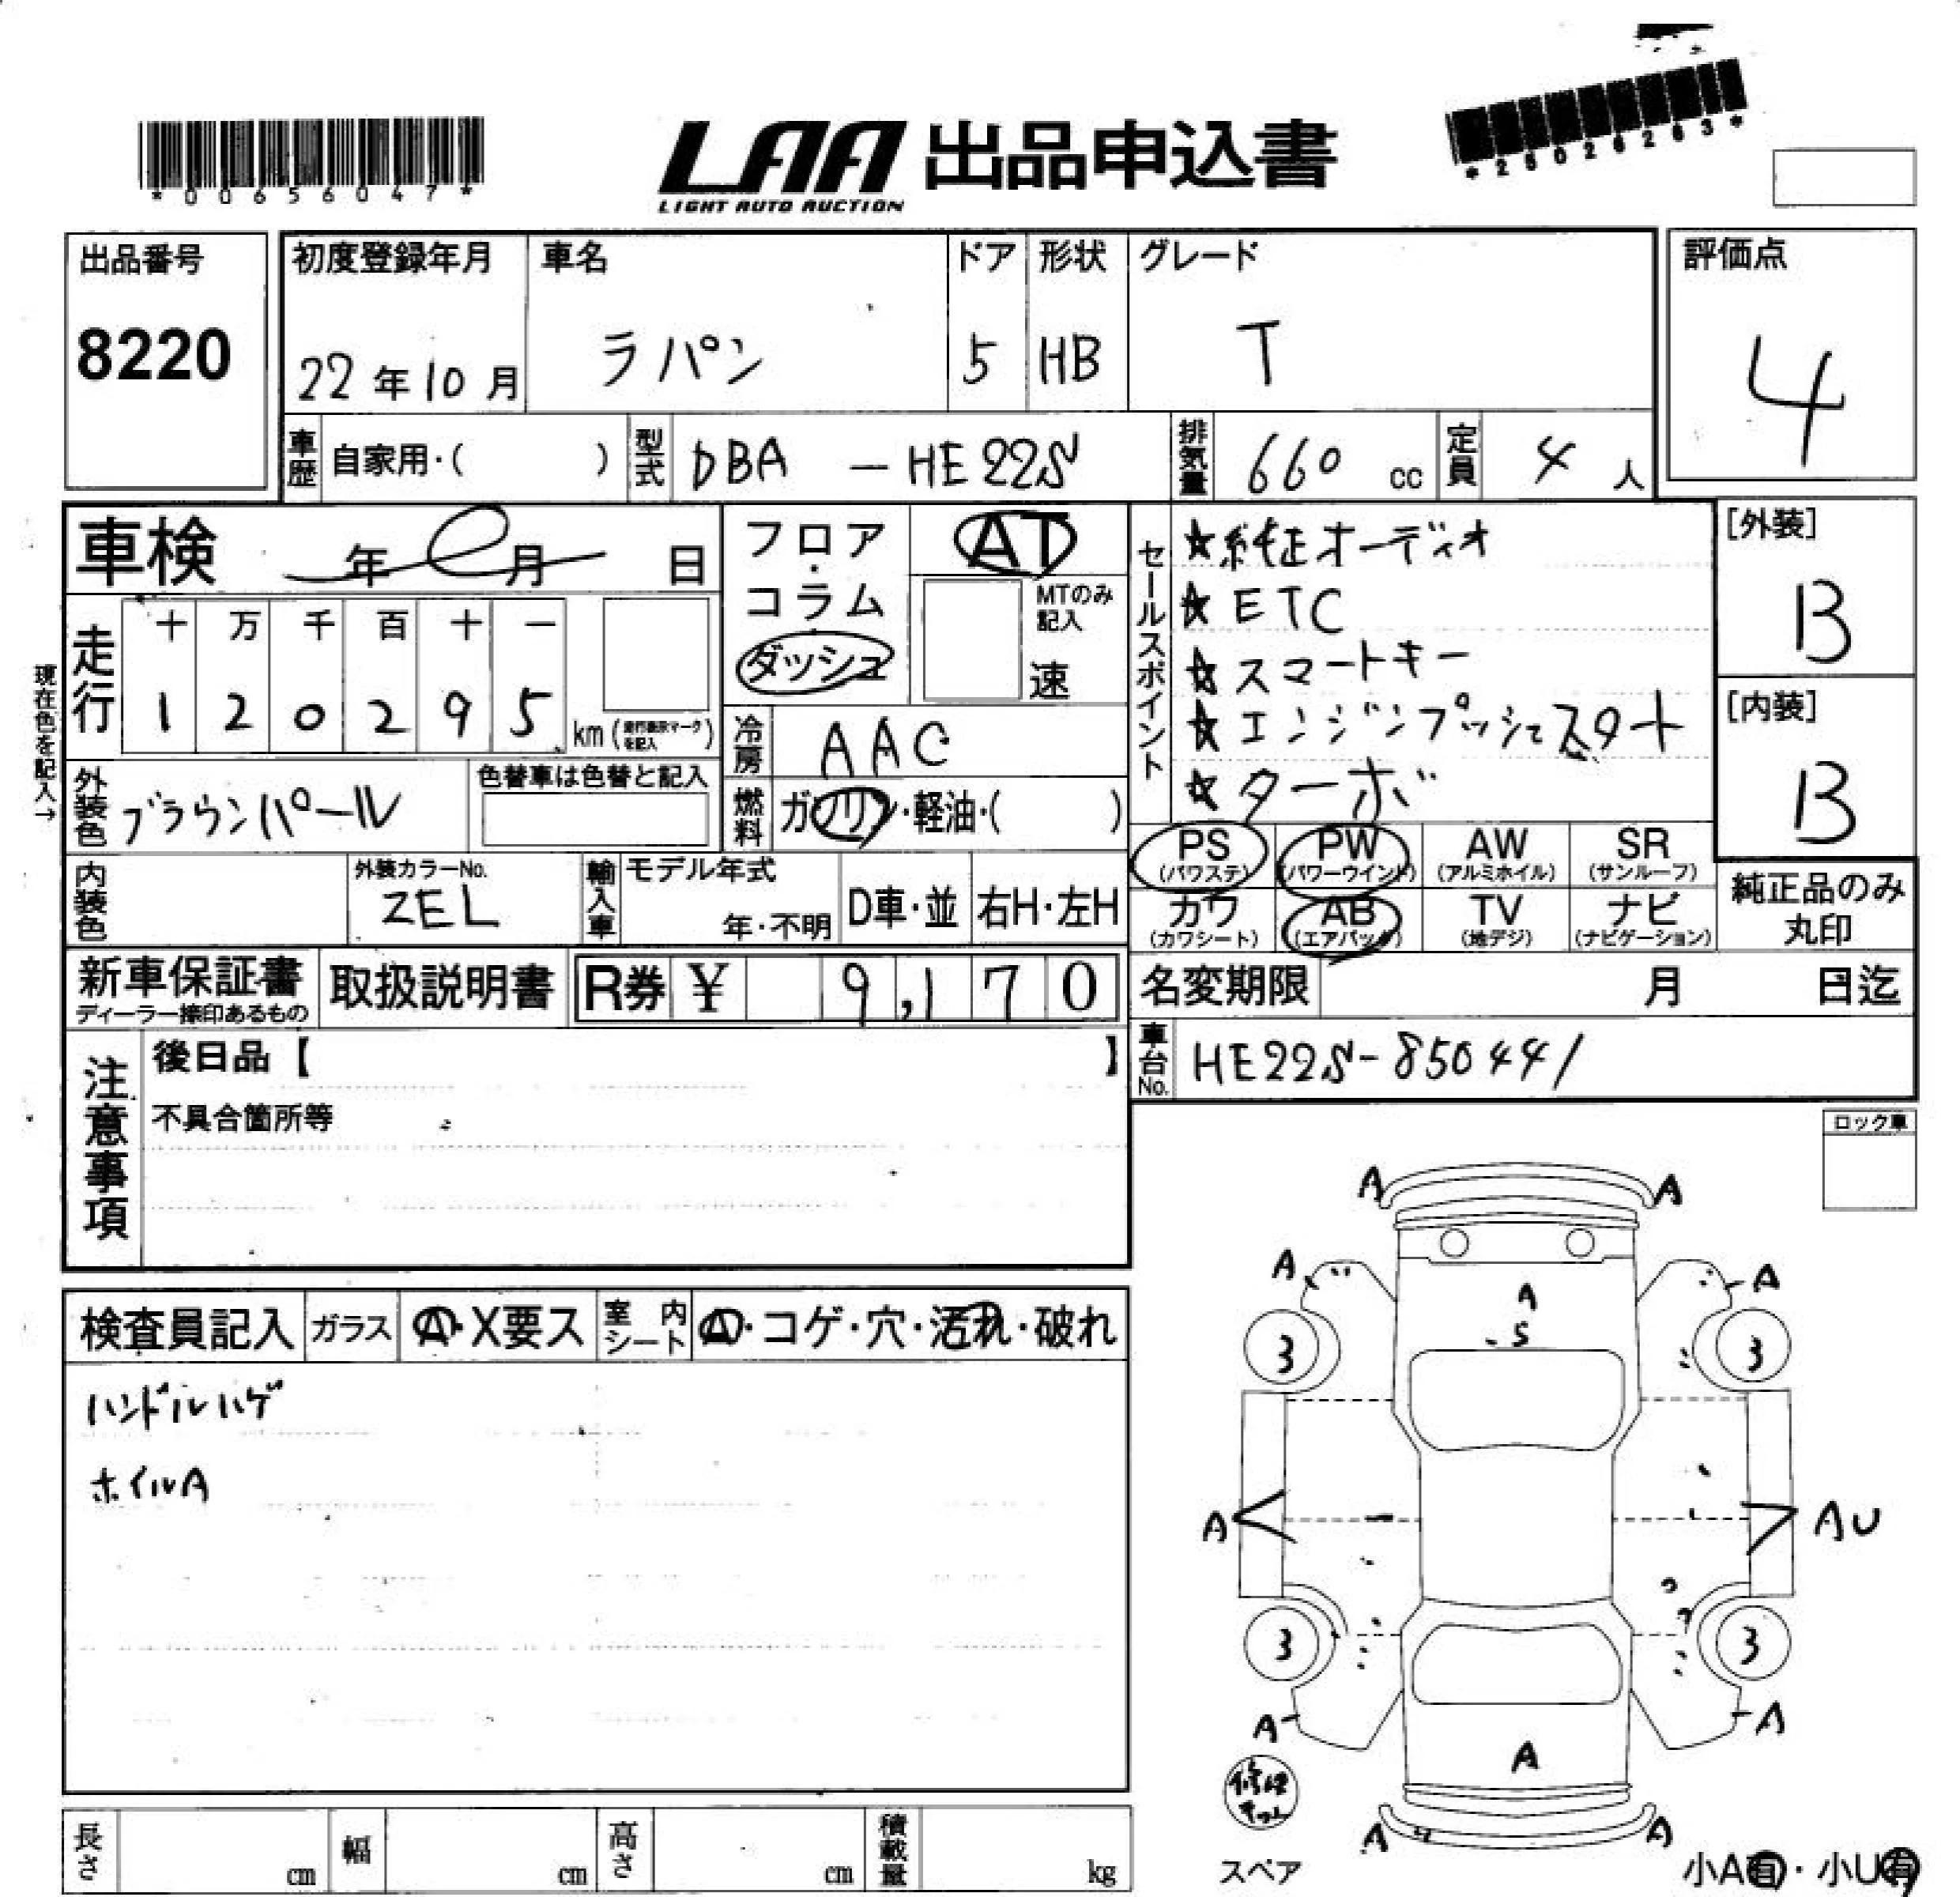 *00656047*
LAA 出品申込書
LIGHT AUTO AUCTION
*25026263*
出品番号
8220
初度登録年月
22年10月
車名
ラパン
ドア
5
形状
HB
グレード
T
評価点
4
車歴
自家用・( )
型式
DBA - HE22S
排気量
660 cc
定員
4 人
車検 年 月 日
フロア・コラム・ダッシュ
AT
MTのみ記入
速
セールスポイント
★純正オーディオ
★ETC
★スマートキー
★エンジンプッシュスタート
★ターボ
[外装]
B
[内装]
B
現在色を記入→
走行
十 万 千 百 十 一
1 2 0 2 9 5
km
冷房
AAC
外装色
ブラウンパール
色替車は色替と記入
燃料
ガソリン・軽油・( )
PS
(パワステ)
PW
(パワーウインド)
AW
(アルミホイル)
SR
(サンルーフ)
カワ
(カワシート)
AB
(エアバック)
TV
(地デジ)
ナビ
(ナビゲーション)
純正品のみ
丸印
内装色
外装カラーNo.
ZEL
輸入車
モデル年式
年・不明
D車・並
右H・左H
新車保証書
ディーラー捺印あるもの
取扱説明書
R券 ¥ 9,170
名変期限 月 日迄
車台No.
HE22S-850441
注意事項
後日品【 】
不具合箇所等
ロック車
検査員記入
ガラス
A・X要ス
室内シート
A・コゲ・穴・汚れ・破れ
ハンドルハゲ
ホイルA
A A
A A
A
S
3 3
A AU
3 3
A A
A
A A
修理キット
スペア
小A有・小U有
長さ cm
幅 cm
高さ cm
積載量 kg